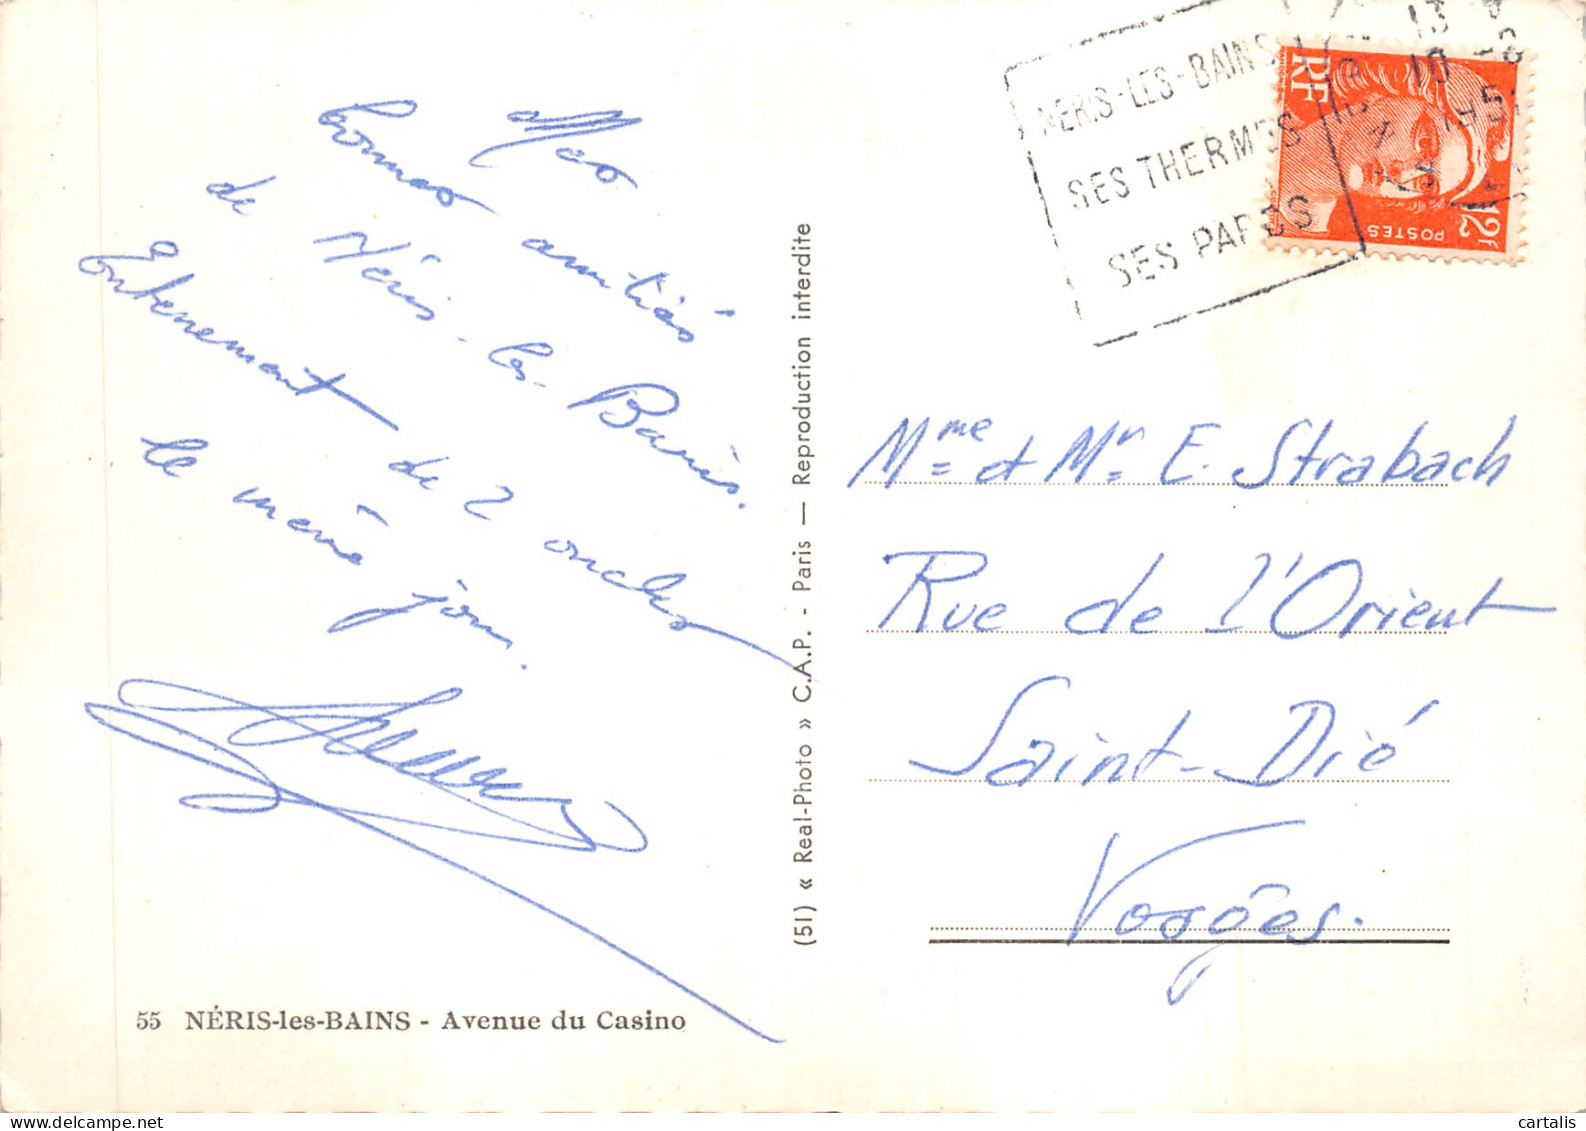 Mes
bonnes amitiés
de Néris-les-Bains.
Enterrement de 2 oncles
le même jour.
55 NÉRIS-les-BAINS - Avenue du Casino
(51) « Real-Photo » C.A.P. - Paris — Reproduction interdite
NERIS-LES-BAINS
SES THERMES
SES PARCS
13
10
1951
RF
POSTES
12F
Mme et Mr E. Strabach
Rue de l'Orient
Saint-Dié
Vosges.
cartalis